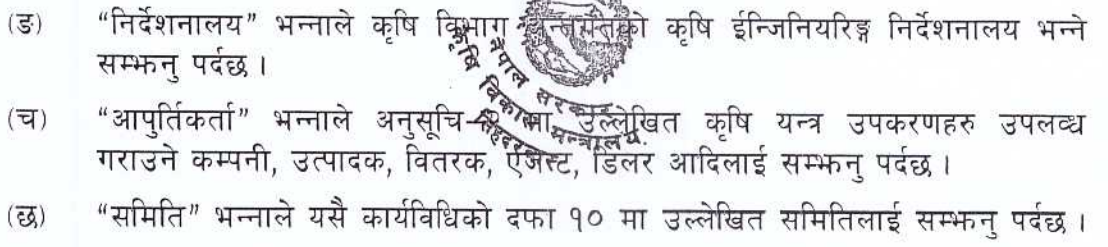 (ङ) “निर्देशनालय” भन्नाले कृषि विभाग अन्तर्गतको कृषि ईन्जिनियरिङ्ग निर्देशनालय भन्ने
सम्झनु पर्दछ ।
नेपाल सरकार
कृषि विकास मन्त्रालय
(च) “आपुर्तिकर्ता” भन्नाले अनुसूचि मा उल्लेखित कृषि यन्त्र उपकरणहरु उपलव्ध
गराउने कम्पनी, उत्पादक, वितरक, एजेन्ट, डिलर आदिलाई सम्झनु पर्दछ ।
(छ) “समिति” भन्नाले यसै कार्यविधिको दफा १० मा उल्लेखित समितिलाई सम्झनु पर्दछ ।